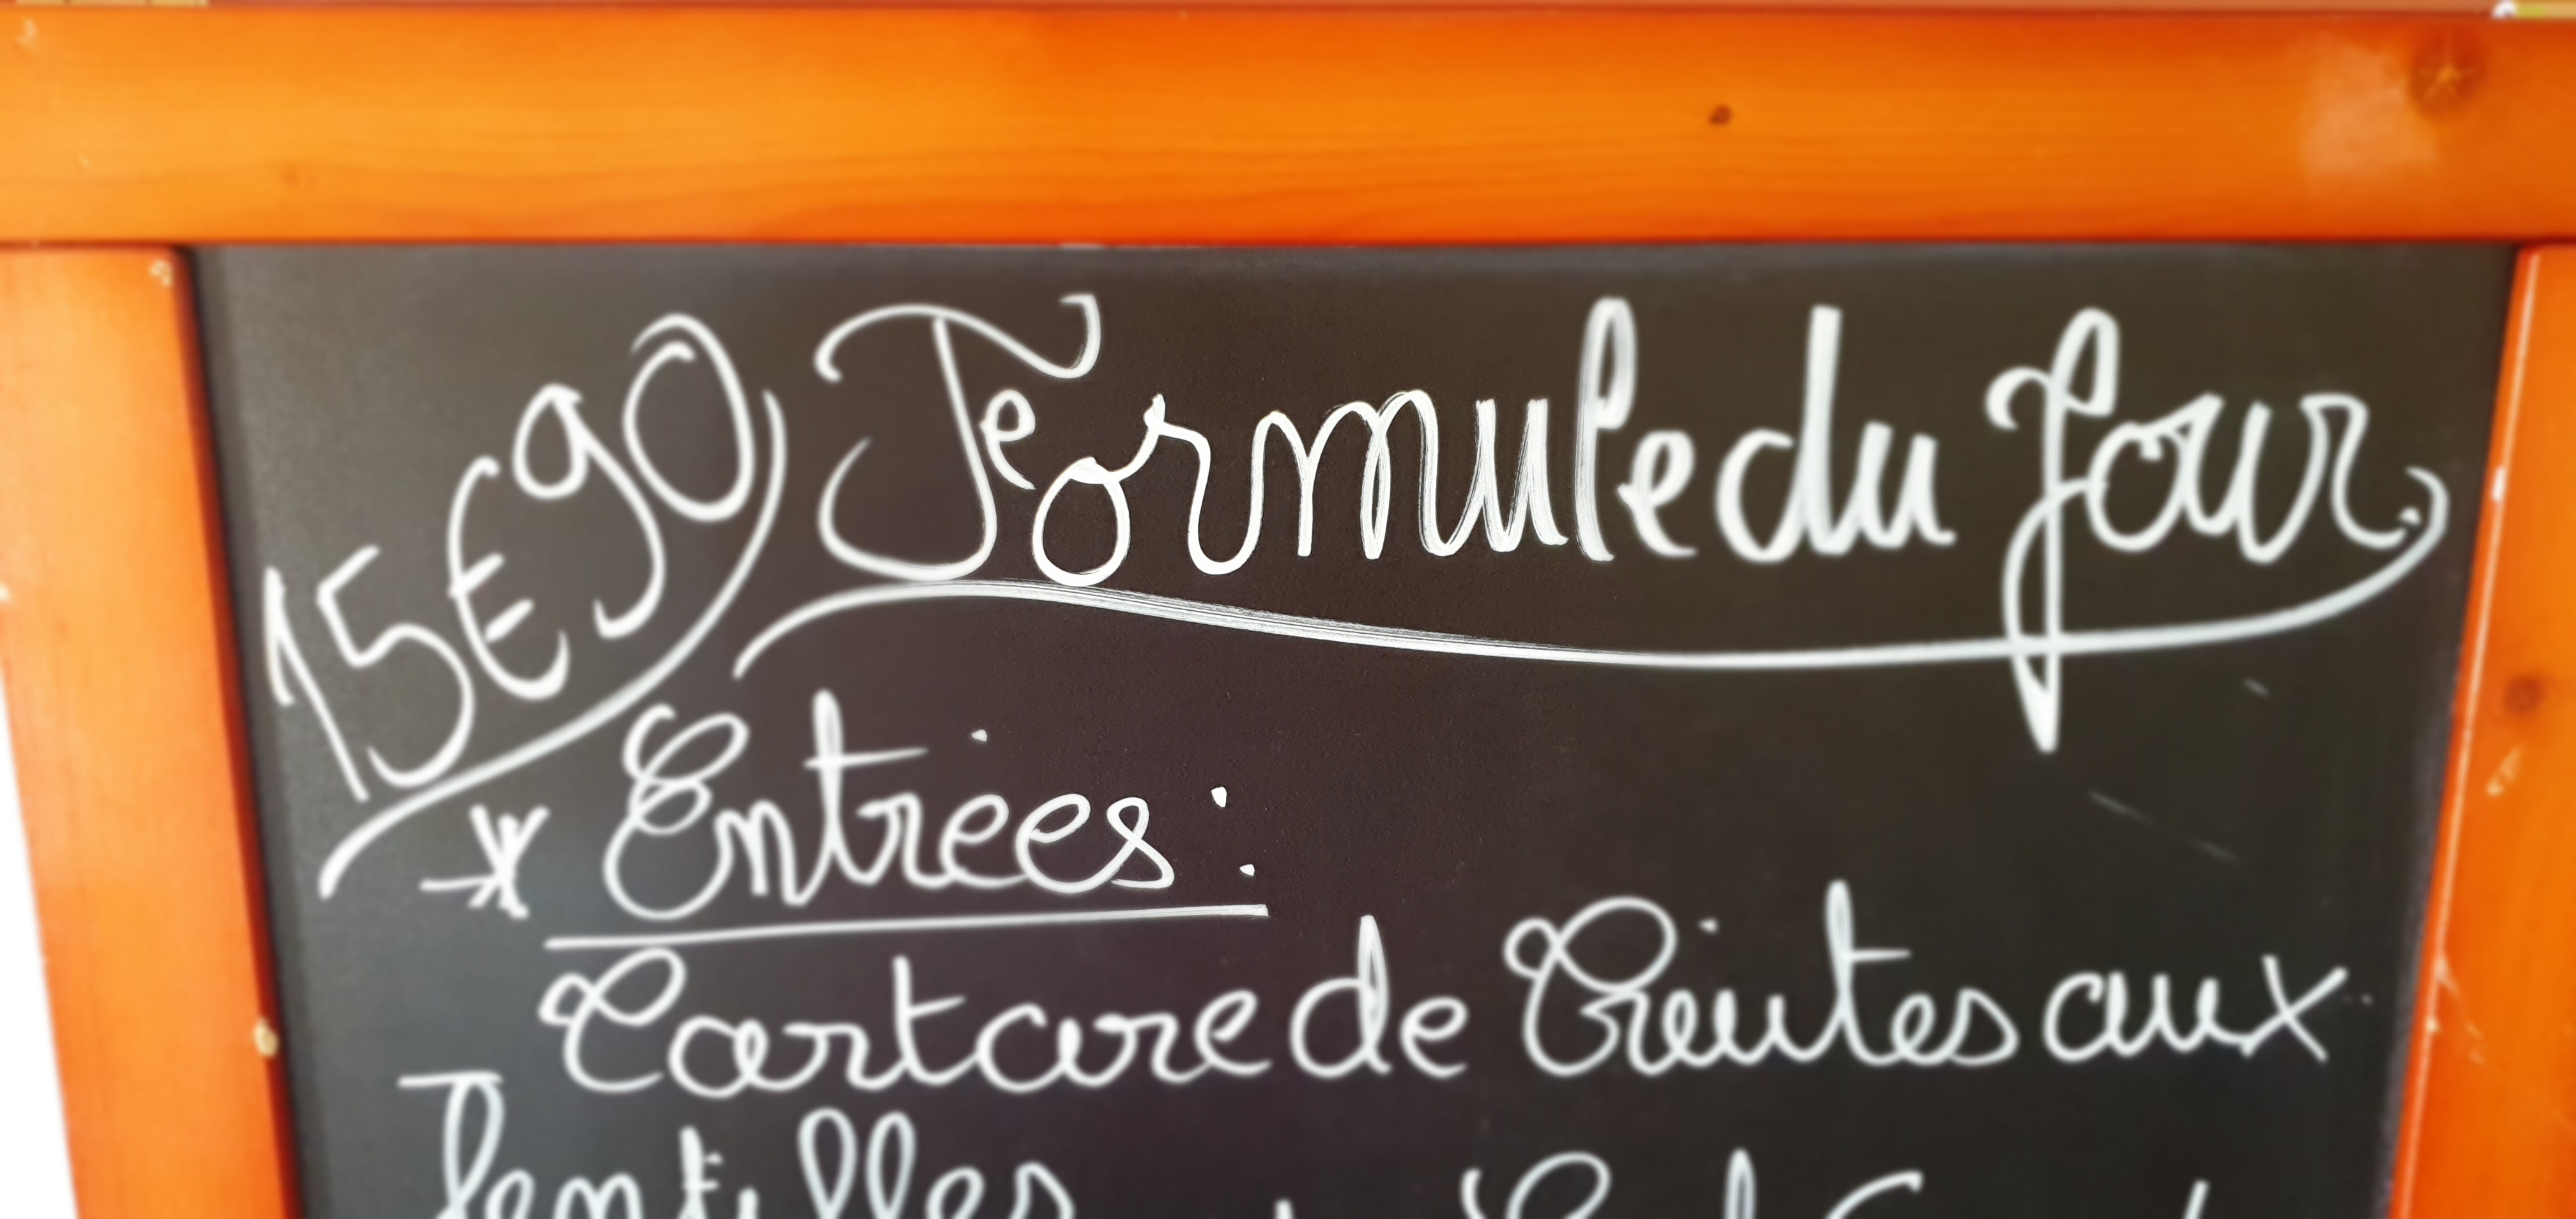 15€90
Formule du Jour
* Entrées :
Tartare de Truites aux
lentilles